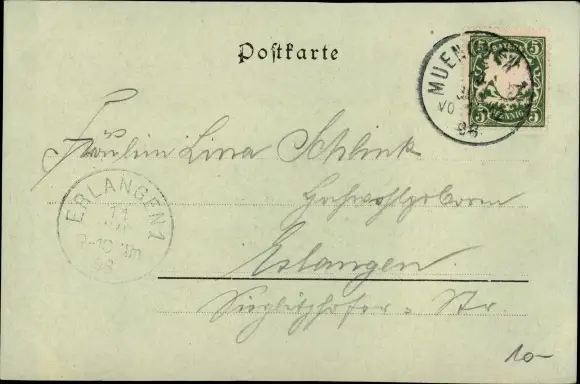 Postkarte
MUEN
VO
98
BAYERN
5 5
5 PFENNIG 5
Fräulein Lina Schlink
Hochwohlgeboren
ERLANGEN 1
11
98
Erlangen.
Sieglitzhofer-Str.
10-